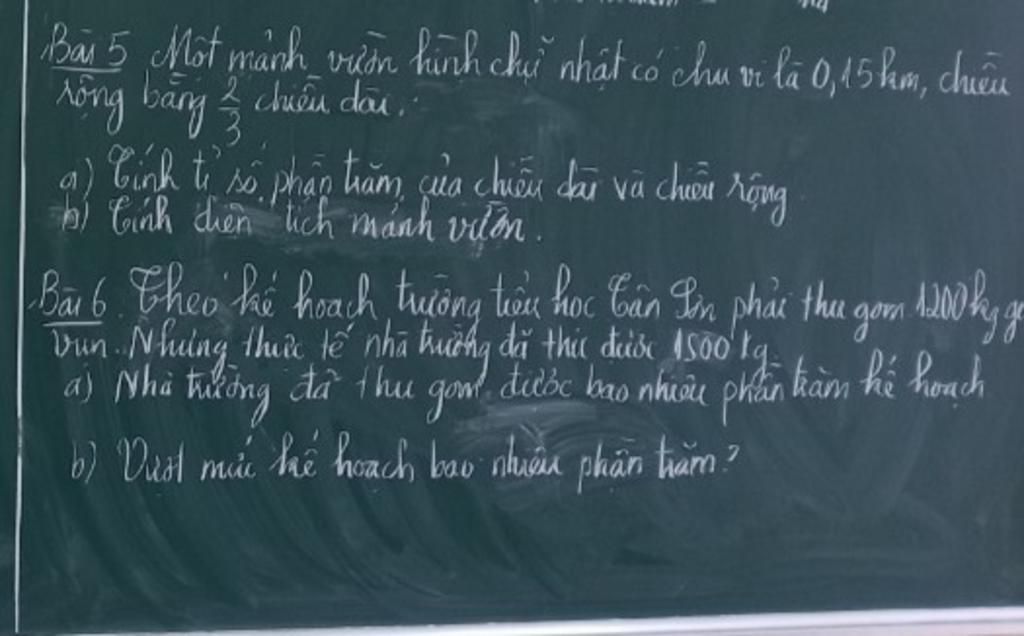 Bài 5 Một mảnh vườn hình chữ nhật có chu vi là 0,15km, chiều
rộng bằng 2/3 chiều dài.
a) Tính tỉ số phần trăm của chiều dài và chiều rộng.
b) Tính diện tích mảnh vườn.
Bài 6. Theo kế hoạch trường tiểu học Tân phải thu gom 1200kg
vụn. Nhưng thực tế nhà trường đã thu được 1500 kg
a) Nhà trường đã thu gom được bao nhiêu phần trăm kế hoạch
b) Vượt mức kế hoạch bao nhiêu phần trăm?